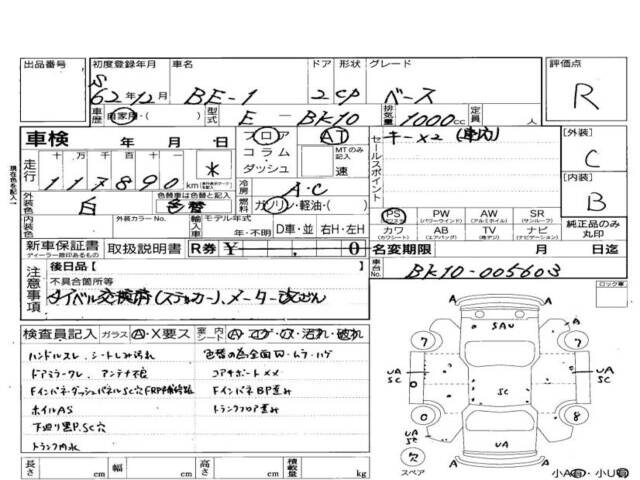 出品番号
初度登録年月 車名 ドア 形状 グレード 評価点
S 62年12月 BE-1 2 CP ベース R
車歴 自家用・( ) 型式 E-BK10 排気量 1000cc 定員 人
車検 年 月 日 フロア AT セールスポイント キー×2 [外装]
コラム・ MTのみ記入 C
走行 十 万 千 百 十 一 ダッシュ 速
117890 km * 冷房 A・C [内装]
外装色 白 色替車は色替と記入 色替 燃料 ガソリン・軽油・( ) B
内装色 外装カラーNo. 輸入車 モデル年式 年・不明 D車・並 右H・左H
PS PW AW SR
(パワステ) (パワーウインド) (アルミホイル) (サンルーフ) 純正品のみ丸印
カワ AB TV ナビ
(カワシート) (エアバッグ) (ナビゲーション)
新車保証書 取扱説明書 R券 ¥ 0 名変期限 月 日迄
ディーラー印があるもの
現在色を記入
注意事項 後日品[ ] 車台No. BK10-005603
不具合箇所等 ロック車
タイベル交換済(ステッカー)、メーター改ざん
検査員記入 ガラス A・X要ス 室内シート
ハンドルスレ、シートしみ汚れ
ドアミラークレ、アンテナ不良 コアサポート××
FインパネBP歪み
ホイルAS トランクフロア歪み
下廻り黒P.SC穴
トランク内水
長さ cm 幅 cm 高さ cm 積載量 kg
A A
SAU
7 7
UA SC UA SC
SC
0 8
UA
欠 スペア
A A
小A有・小U有